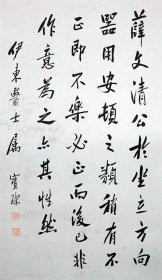 薛文清公於坐立方向
器用安頓之類稍有不
正即不樂必正而後已非
作意為之亦其性然
伊東醫士屬
寶璨